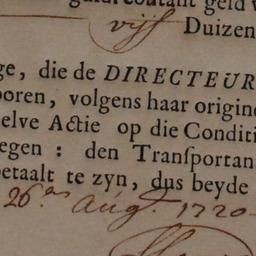 guldi coutant geld v
vijf Duizen
ge, die de DIRECTEUR
ooren, volgens haar origine
selve Actie op die Conditi
egen : den Tranſportan
betaalt te zyn, dus beyde
26.en Aug.t 1720